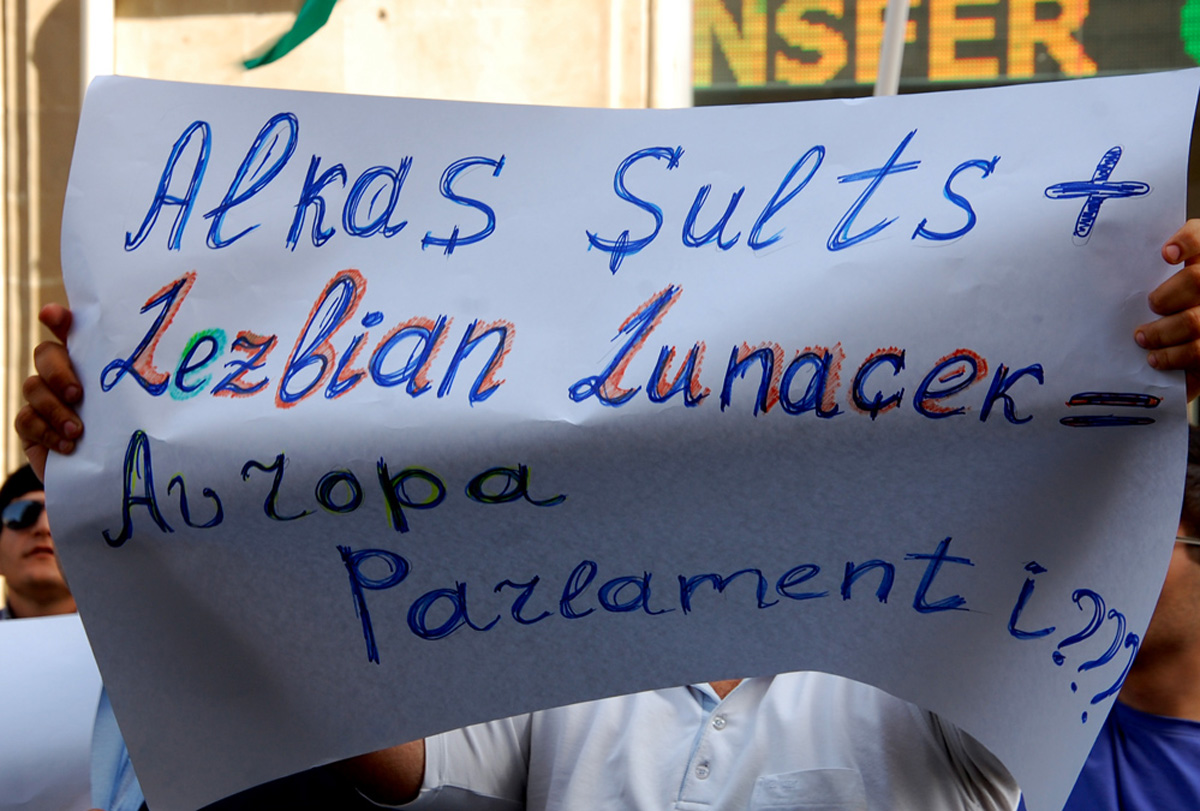 NSFER
Alkaş Şults +
Lezbian Lunaçek =
Avropa
Parlament i???